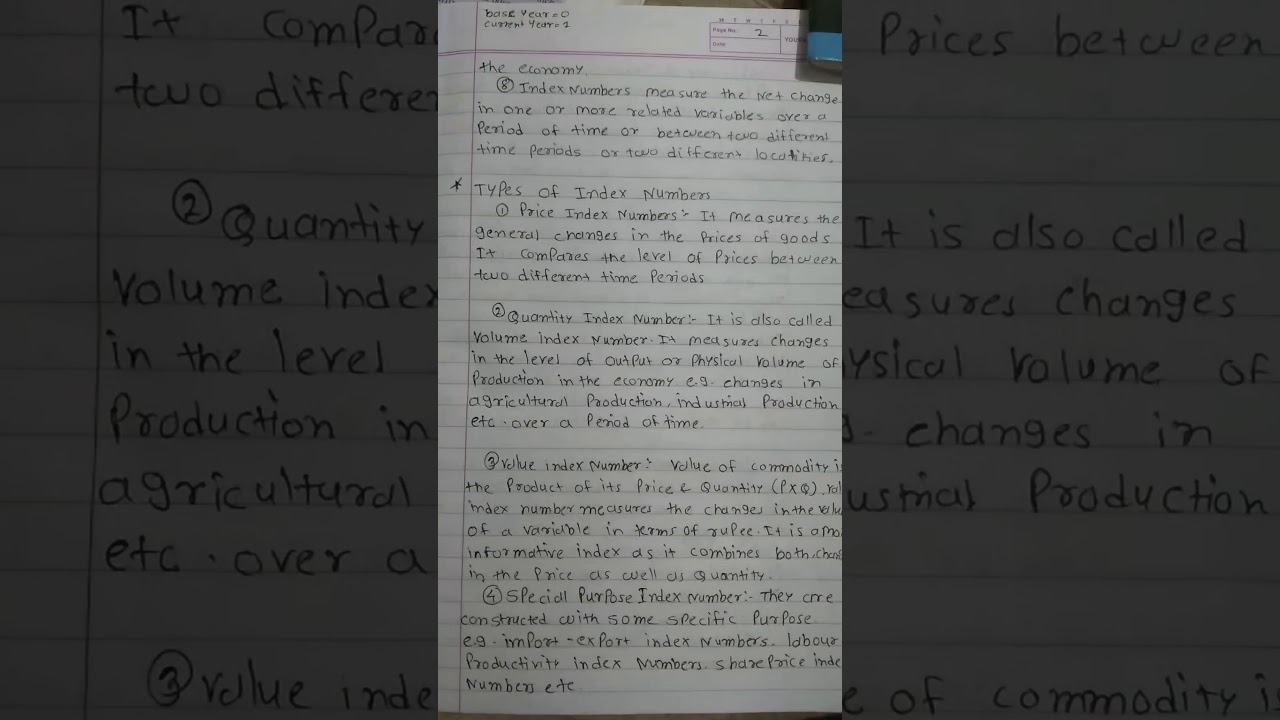 base Year=0
current Year=1
Page No.: 2
Date:
the economy.
⑧ Index Numbers measure the Net change
in one or more related variables over a
Period of time or between two different
time periods or two different localities.
* Types of Index Numbers
① Price Index Numbers:- It measures the
general changes in the Prices of goods
It compares the level of Prices between
two different time Periods
② Quantity Index Number:- It is also called
Volume index Number. It measures changes
in the level of output or Physical Volume of
Production in the economy e.g. changes in
agricultural Production, industrial Production
etc. over a Period of time.
③ Value index Number:- Value of commodity is
the Product of its Price & Quantity (PXQ).
index number measures the changes in the
of a variable in terms of rupee. It is a
informative index as it combines both
in the Price as well as Quantity.
④ Special Purpose Index Number:- They are
constructed with some specific Purpose
e.g. import-export index Numbers. labour
Productivity index Numbers. share Price
Numbers etc